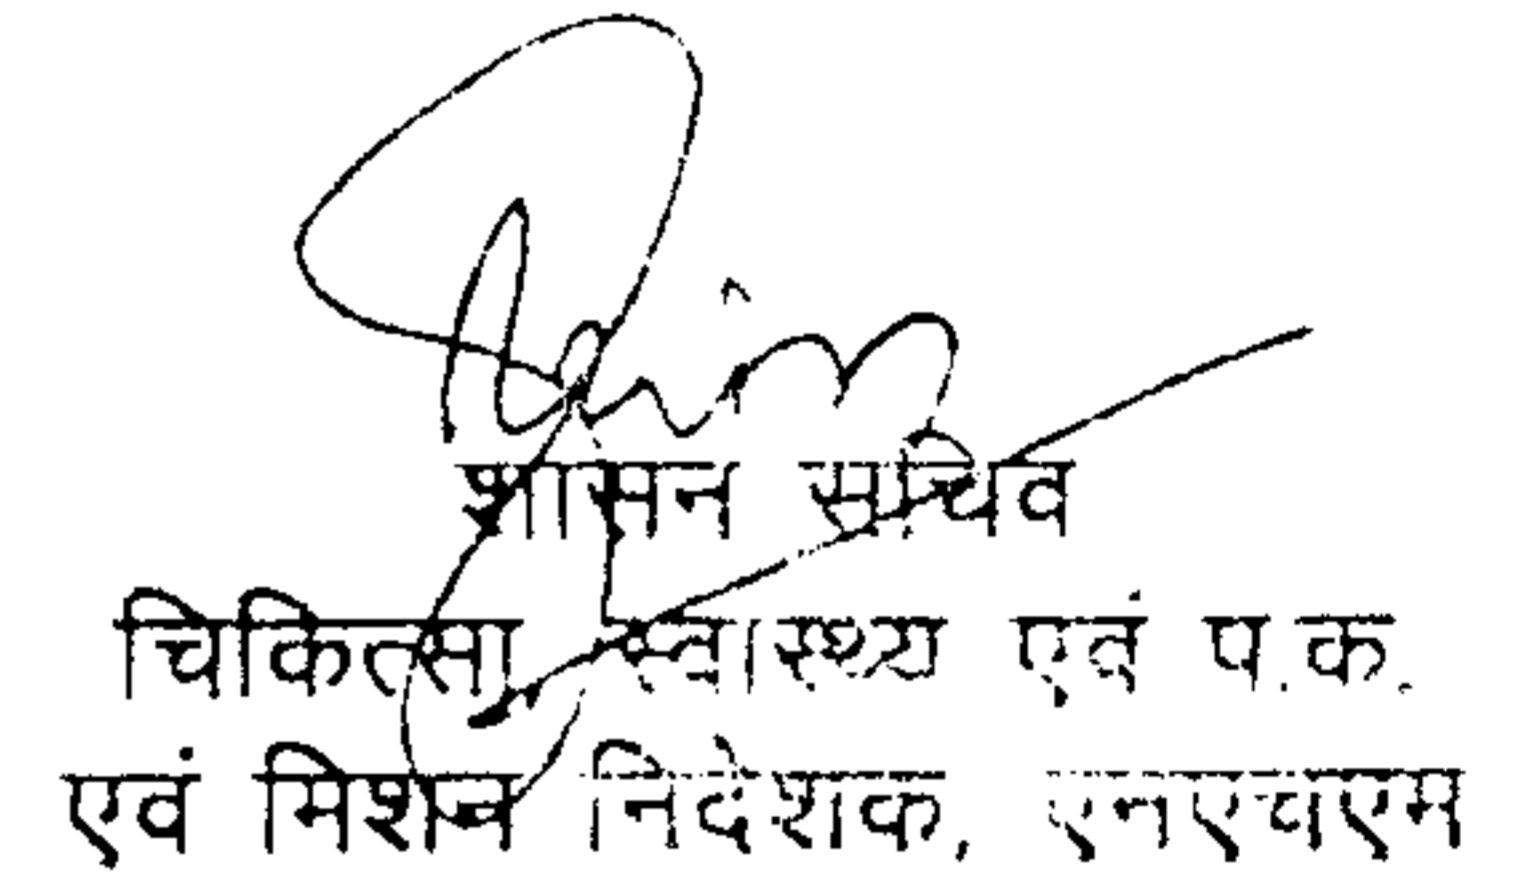 शासन सचिव
चिकित्सा स्वास्थ्य एवं प.क.
एवं मिशन निदेशक, एनएचएम